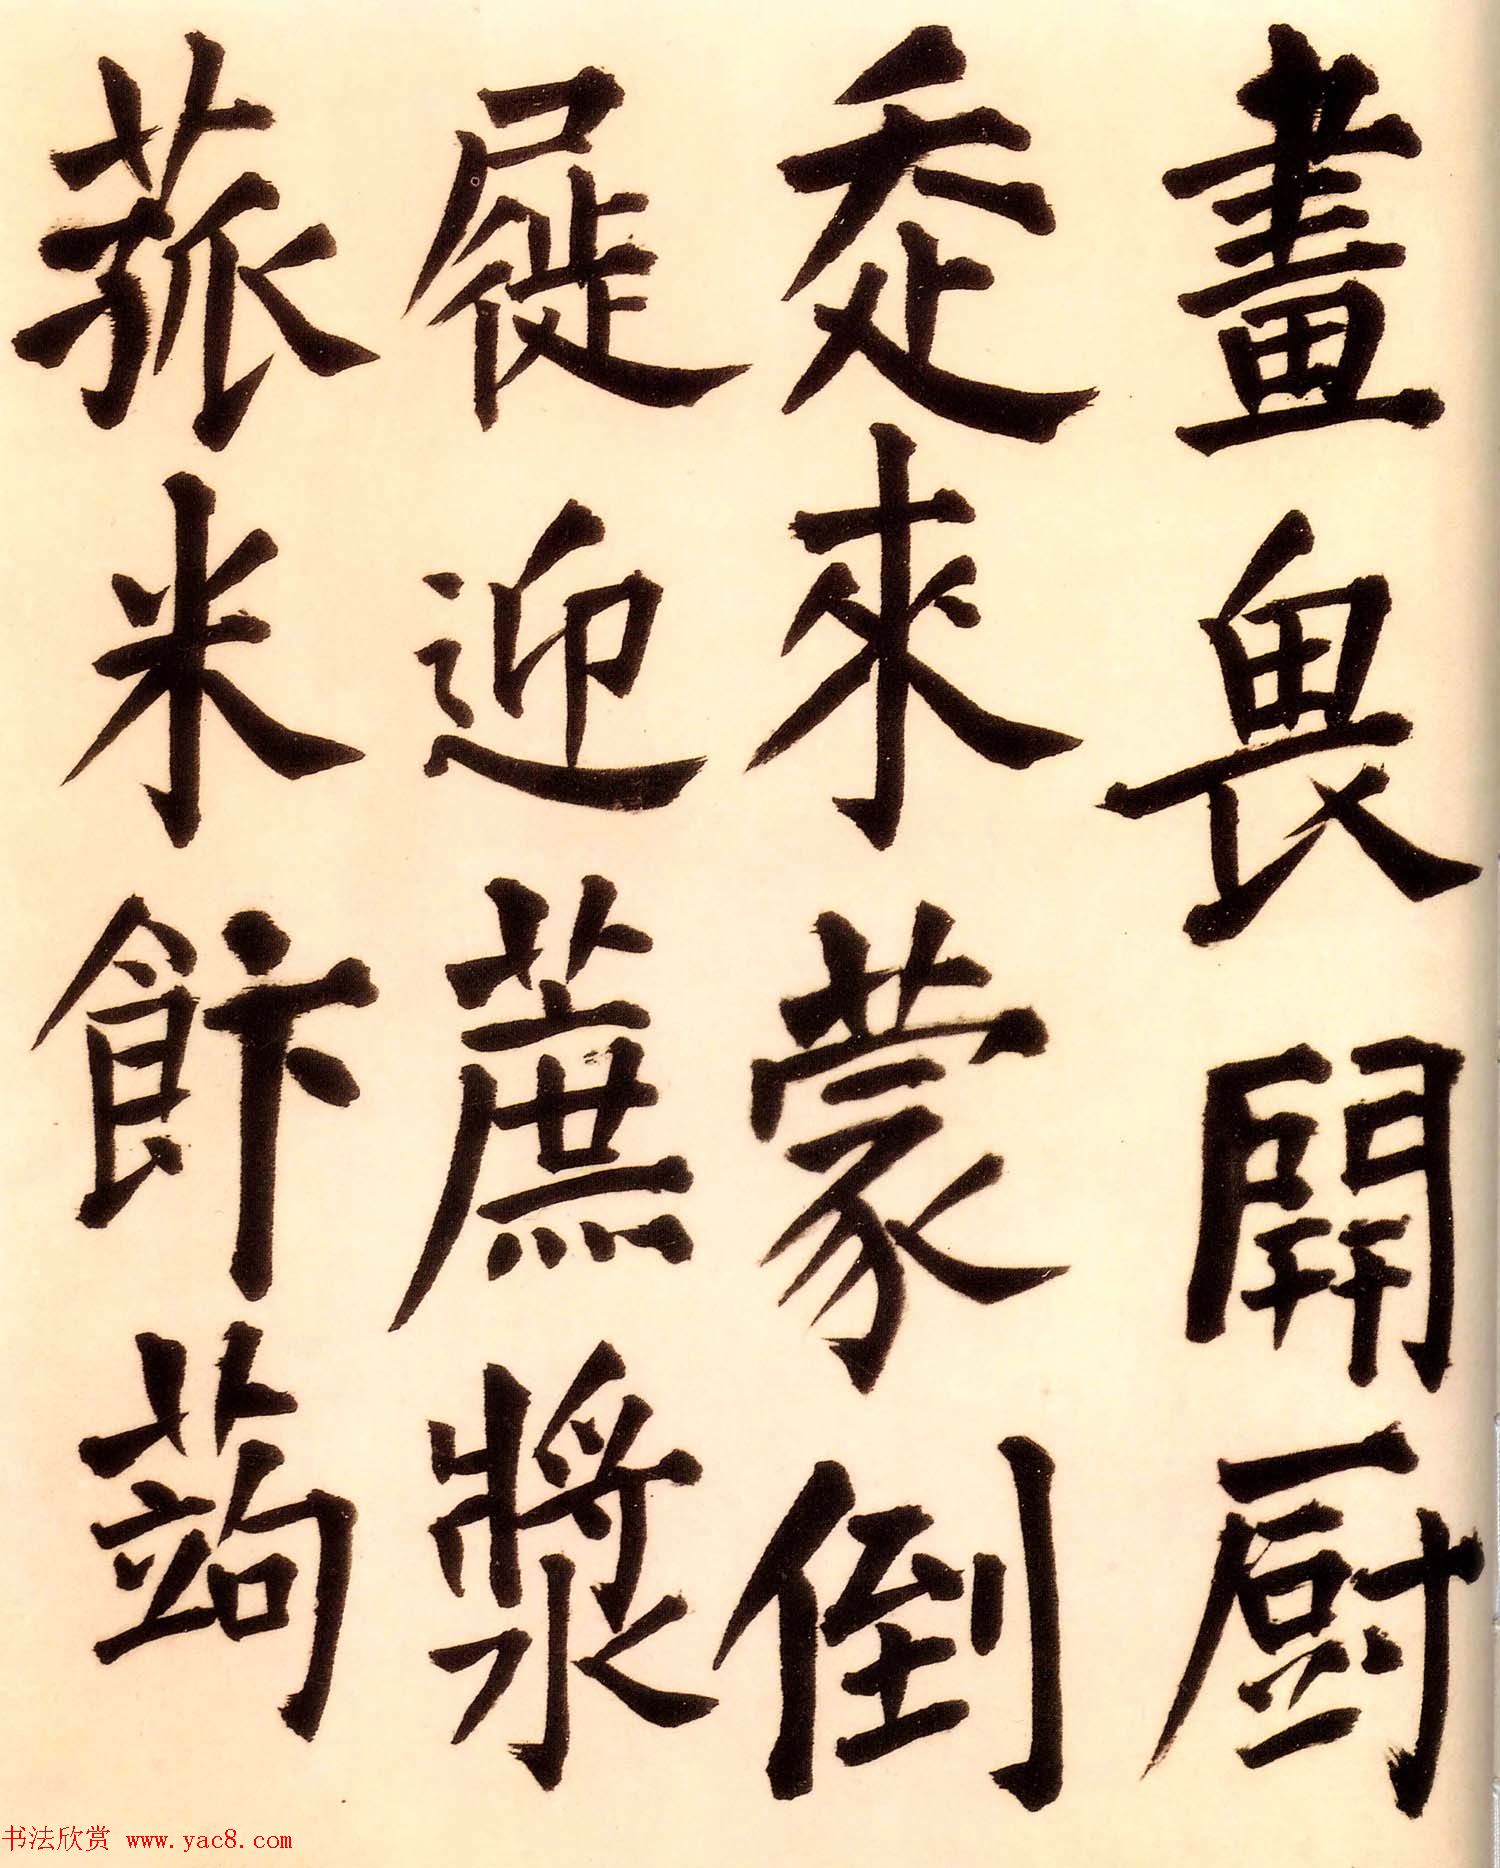 畫畏開厨
走來蒙倒
屣迎蔗漿
菰米飰蒟
书法欣赏 www.yac8.com